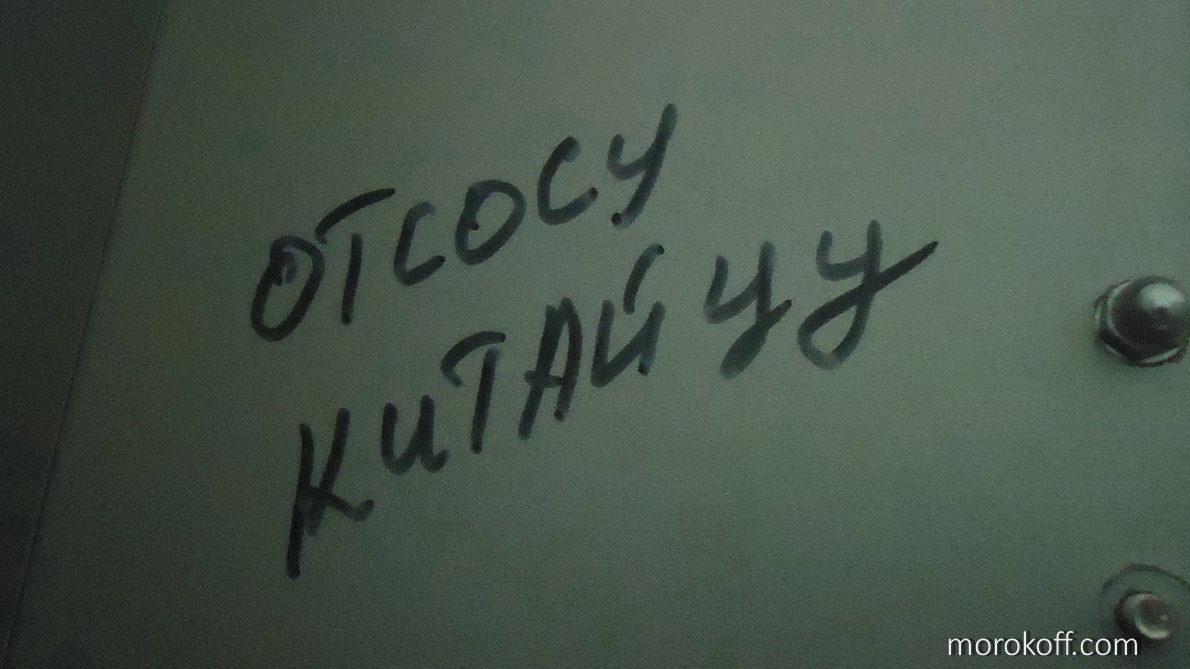 ОТСОСУ
КИТАЙЦУ
morokoff.com